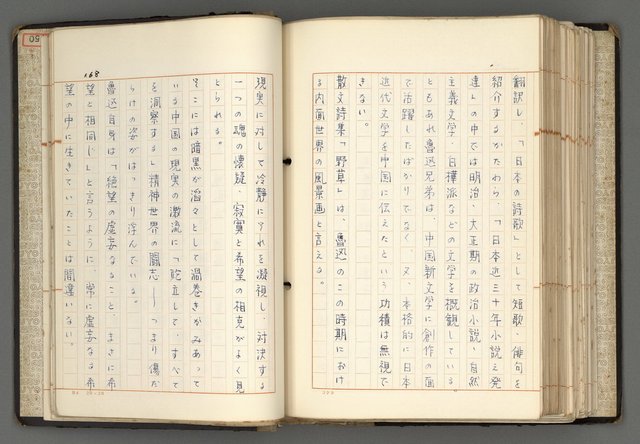 翻訳し、「日本の詩歌」として短歌、俳句を
紹介するかたわら、「日本近三十年小説之発
達」の中では明治、大正期の政治小説、自然
主義文学、白樺派などの文学を概観している。
ともあれ魯迅兄弟は、中国新文学に創作の面
で活躍したばかりでなく、又、本格的に日本
近代文学を中国に伝えたという功績は無視で
きない。
散文詩集「野草」は、魯迅のこの時期におけ
る内面世界の風景画と言える。
168
現実に対して冷静にそれを凝視し、対決する
一つの魂の懐疑、寂寞と希望の相克がよく見
とられる。
そこには暗黒が滔々として渦巻きがみあって
いる中国の現実の激流に「屹立して、すべて
を洞察する」精神世界の闘志――つまり傷だ
らけの姿がはっきり浮んでいる。
魯迅自身は「絶望の虚妄なること、まさに希
望と相同じ」と言うように、常に虚妄なる希
望の中に生きていたことは間違いない。
50